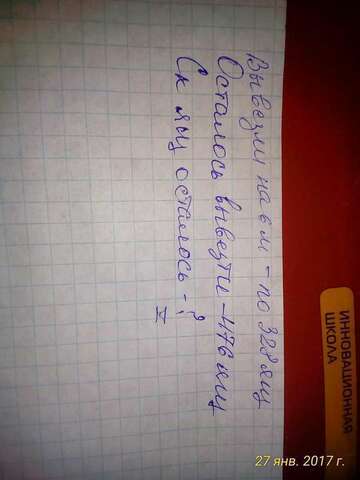 Вывезли на 6 м - по 328 ящ
Осталось вывезти - 476 ящ
Ск ящ осталось - ?
ИННОВАЦИОННАЯ
ШКОЛА
27 янв. 2017 г.